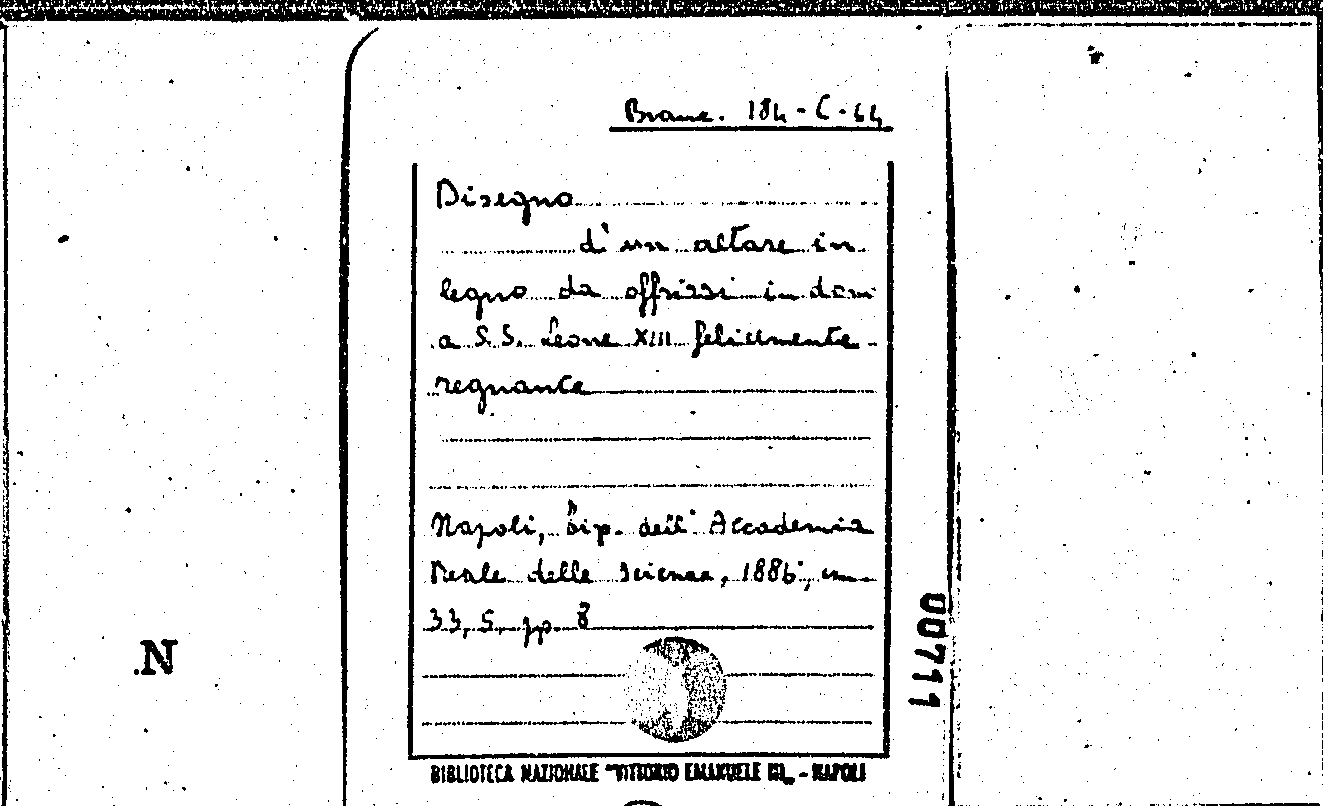 Branc. 184-C-64
Disegno
d'un altare in
legno da offrirsi in dono
a S.S. Leone XIII felicemente
regnante
Napoli, tip. dell' Accademia
Reale delle Scienze, 1886, cm.
33,5, pp. 8
00711
N.
BIBLIOTECA NAZIONALE "VITTORIO EMANUELE III" - NAPOLI